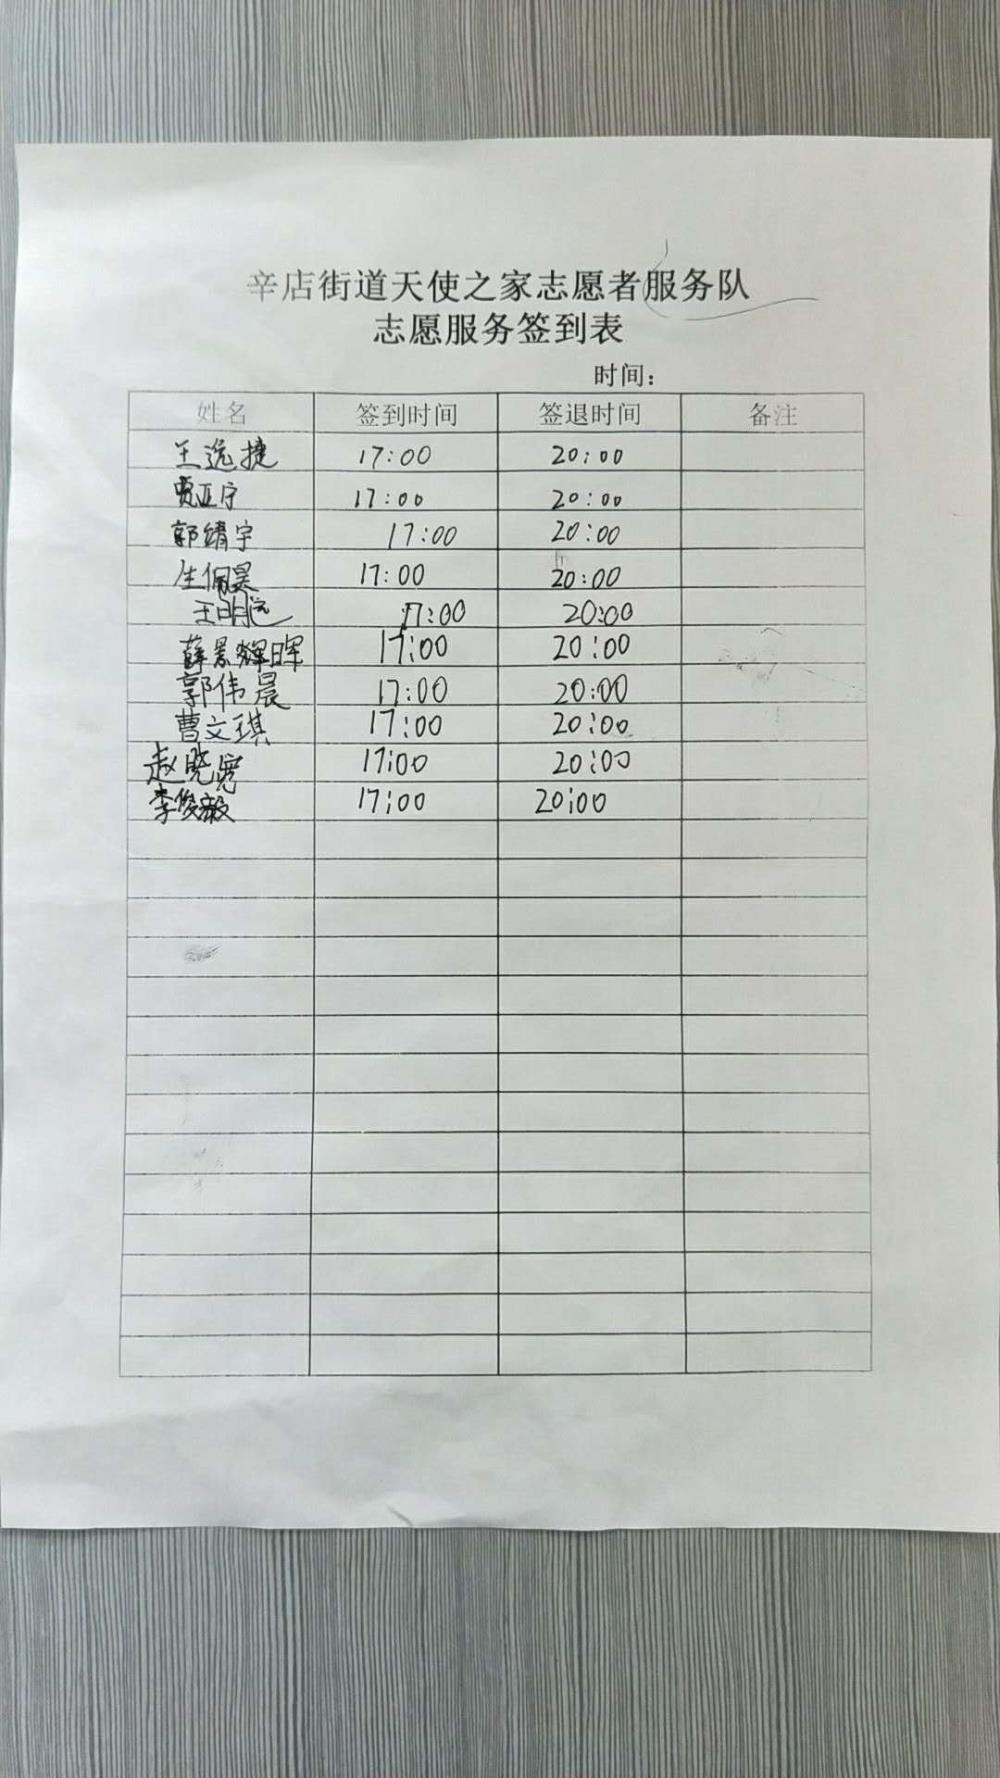 辛店街道天使之家志愿者服务队
志愿服务签到表
时间：
姓名 签到时间 签退时间 备注
王逸捷 17:00 20:00
贾亚宁 17:00 20:00
郭靖宇 17:00 20:00
生佩昊 17:00 20:00
王明远 17:00 20:00
薛景辉 17:00 20:00
郭伟晨 17:00 20:00
曹文琪 17:00 20:00
赵晓宽 17:00 20:00
李俊毅 17:00 20:00